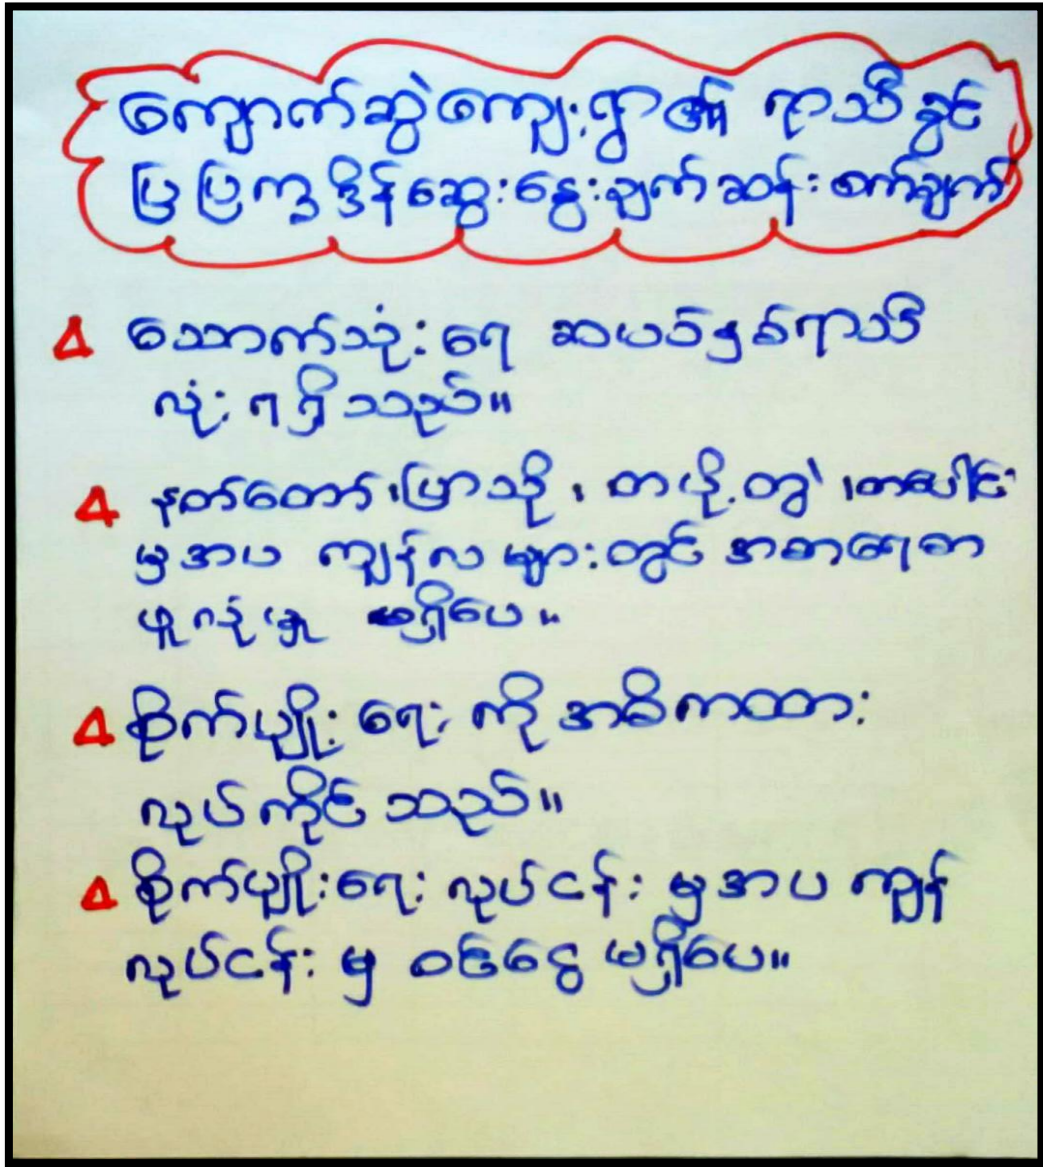 ကျောက်ဆွဲကျေးရွာ၏ ရာသီခွင်
ပြ ပြက္ခဒိန်ဆွေးနွေးချက်ဆန်းစက်ချက်
သောက်သုံးရေ ဆယ်နှစ်ရာသီ
လုံး ရရှိသည်။
နတ်တော်၊ ပြာသို၊ တပို့တွဲ၊ တပေါင်း
မှအပ ကျန်လများတွင် အစာရေစာ
ဖူလုံမှု မရှိပေ။
စိုက်ပျိုးရေး ကို အဓိကထား
လုပ်ကိုင်သည်။
စိုက်ပျိုးရေး လုပ်ငန်း မှအပ ကျန်
လုပ်ငန်း မှ ဝင်ငွေ မရှိပေ။